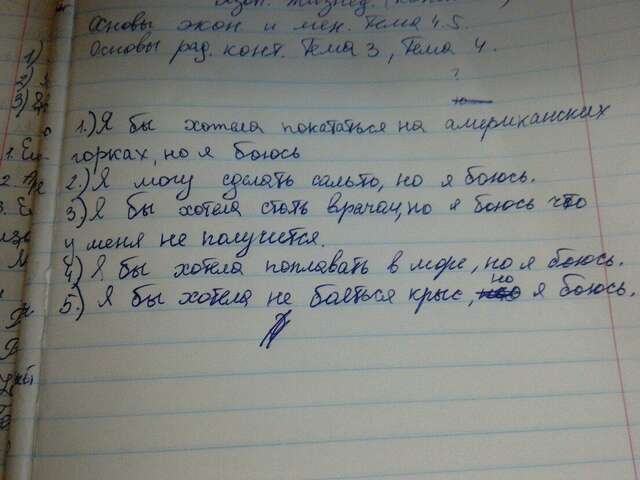 Основы экон. и мен. Тема 4.5.
Основы рад. конт. Тема 3, Тема 4.
?
1)
2)
3)
1.) Я бы хотела покататься на американских
горках, но я боюсь
2.) Я могу сделать сальто, но я боюсь.
3) Я бы хотела стать врачом, но я боюсь что
у меня не получится.
4) Я бы хотела поплавать в море, но я боюсь.
5.) Я бы хотела не бояться крыс, но я боюсь.